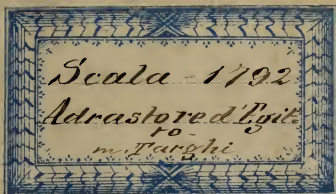 Scala - 1792
Adrastore d'Egit
to -
m. Targhi